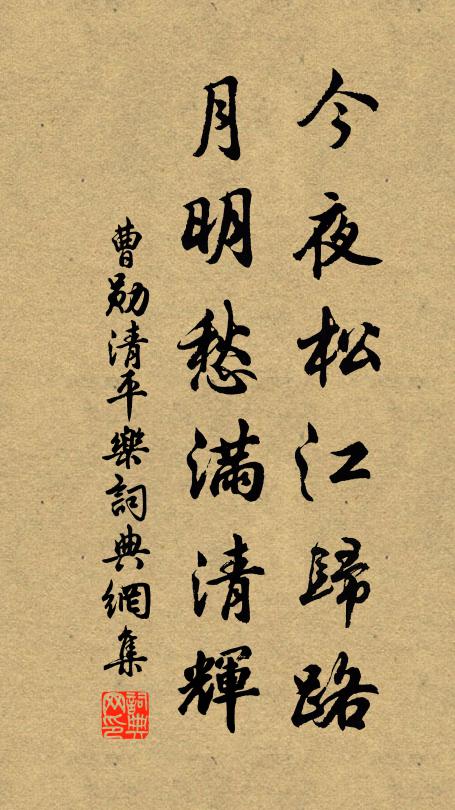 今夜松江歸路
月明愁滿清輝
曹勛清平樂詞典網集
詞典網印